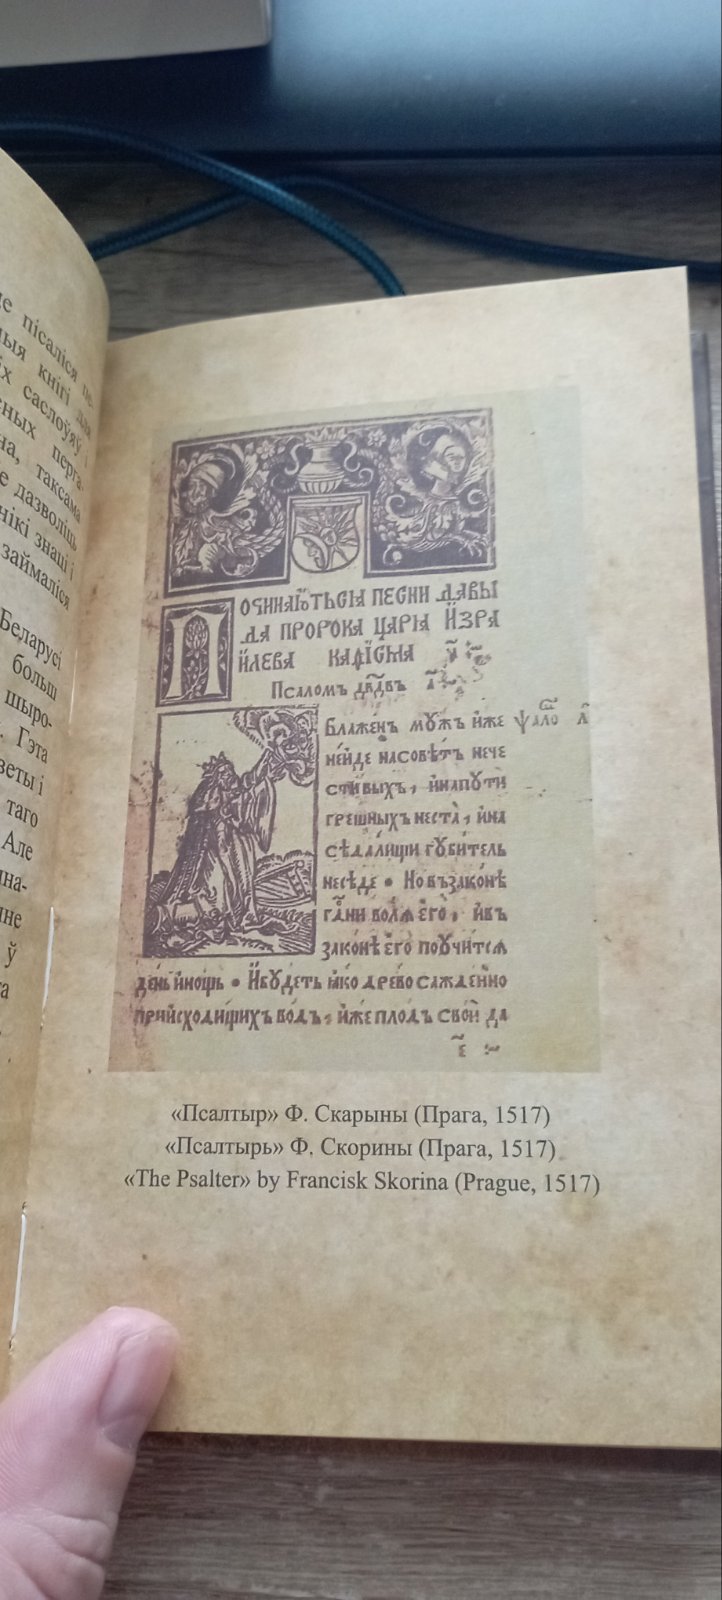 пісаліся
кнігі для
саслоўяў і
перга-
таксама
дазволіць
знаці і
займаліся
Беларусі
больш
шыро-
Гэта
таго
Але
ў
ПОЧИНАЮТЬСІА ПЕСНИ ДАВЫ
ДА ПРОРОКА ЦАРІА ИЗРА
ИЛЕВА КАФИСМА
Псаломъ двдвъ
Блаженъ мужъ иже ѱало
неиде насовѣтъ нече
стивыхъ, инапути
грешныхъ неста, ина
сѣдалищи губитель
несѣде • Но възаконѣ
гани воля его, ивъ
законѣ его поучится
день инощь • Ибудеть яко древо сажденно
приисходищихъ водъ, иже плодъ свои да
«Псалтыр» Ф. Скарыны (Прага, 1517)
«Псалтырь» Ф. Скорины (Прага, 1517)
«The Psalter» by Francisk Skorina (Prague, 1517)